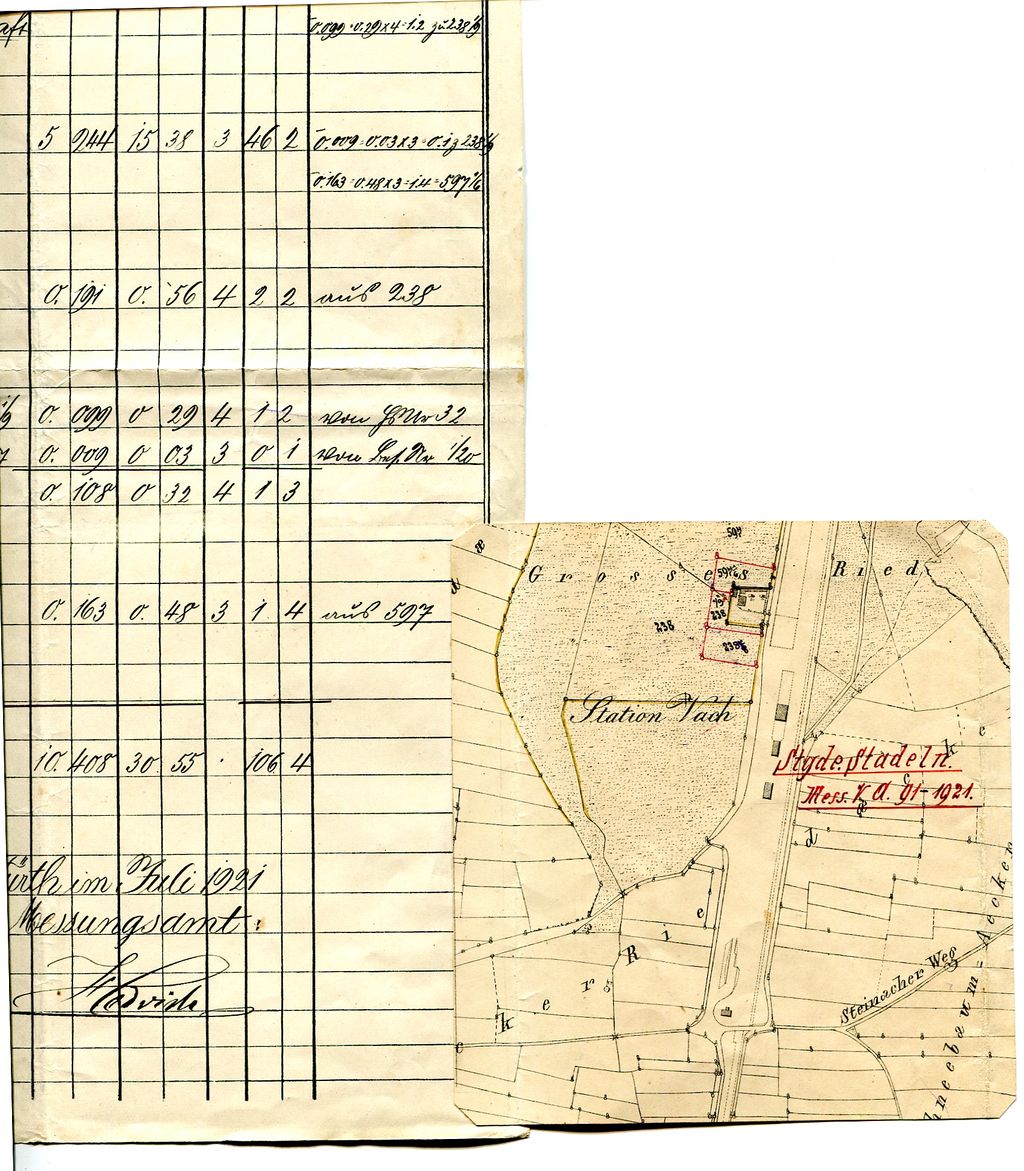 aft
0.099 = 0.29 x 4 = 1.2 zu 238 1/9
5 244 15 38 3 46 2 0.009 = 0.03 x 3 = 0.1 z 238 1/9
0.163 = 0.48 x 3 = 1.4 = 597 1/6
0. 191 0. 56 4 2 2 aus 238
1/9 0. 099 0 29 4 1 2 von HsNr 32
7 0. 009 0 03 3 0 1 von Bes. Nr 1/20
0. 108 0 32 4 1 3
0. 163 0. 48 3 1 4 aus 597
10. 408 30. 55 . 106 4
ürth im Juli 1921
Messungsamt:
597
Grosses Ried
238
238
Station Vach
Stgde. Stadeln.
Mess. V. A. 91-1921.
Steinacher Weg
hneebaum = Aecker